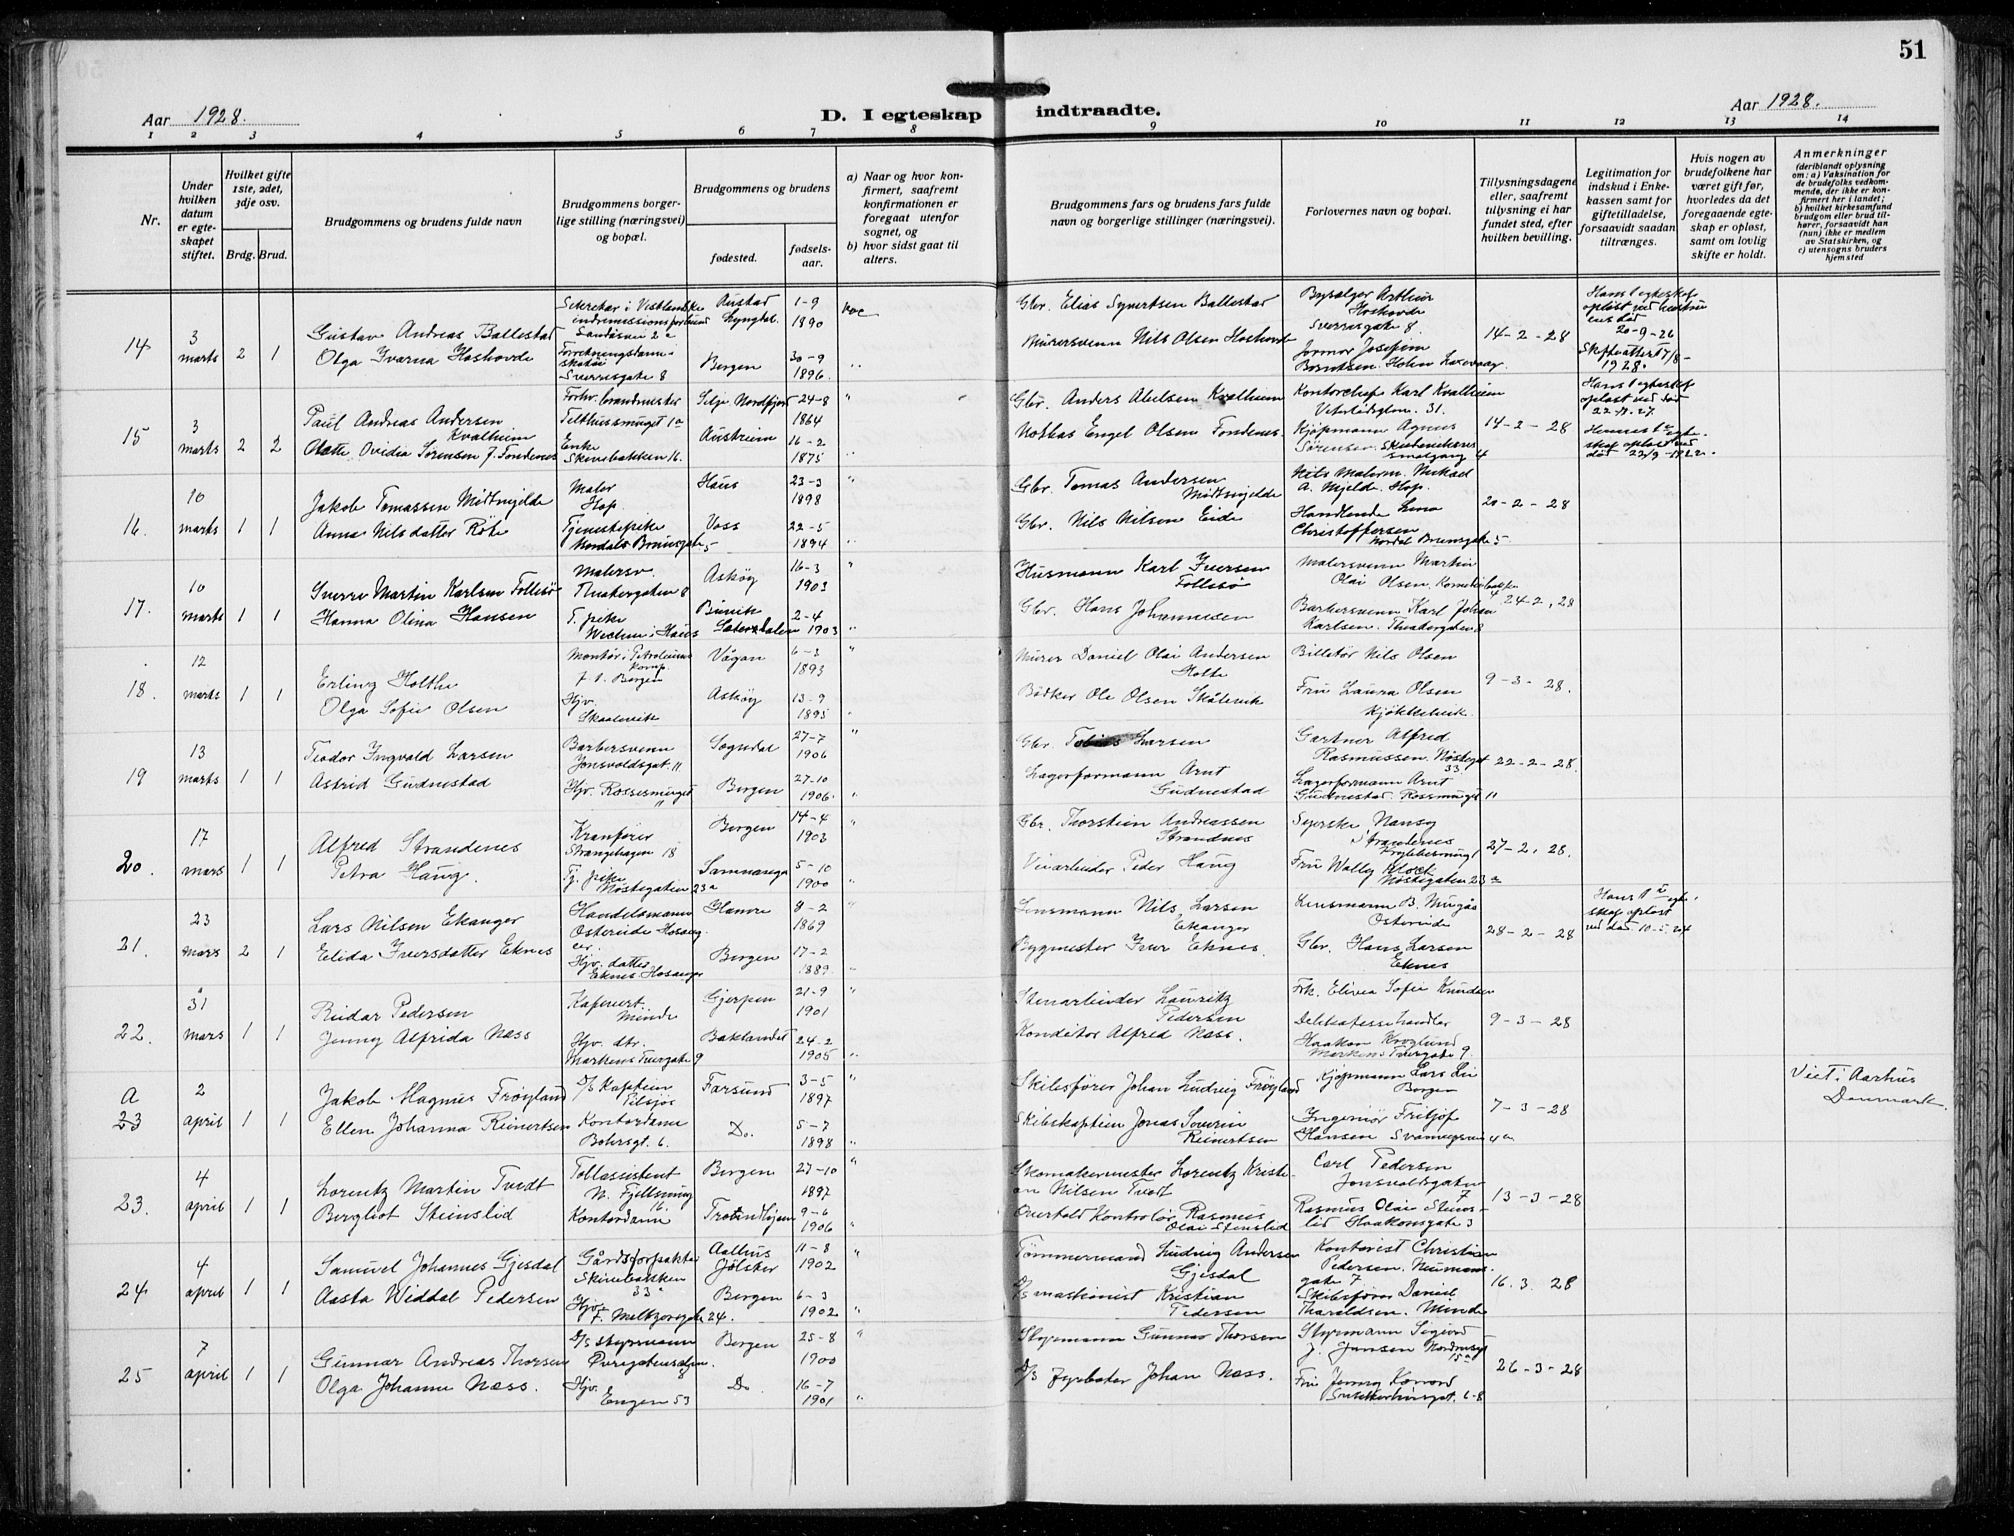 51
Aar 1928.
D. I egteskap indtraadte.
Aar 1928.
1 2 3 4 5 6 7 8 9 10 11 12 13 14
Nr.
Under hvilken datum er egteskapet stiftet.
Hvilket gifte 1ste, 2det, 3dje osv.
Brdg. Brud.
Brudgommens og brudens fulde navn
Brudgommens borgerlige stilling (næringsvei) og bopæl.
Brudgommens og brudens
fødested.
fødselsaar.
a) Naar og hvor konfirmert, saafremt konfirmationen er foregaat utenfor sognet, og
b) hvor sidst gaat til alters.
Brudgommens fars og brudens fars fulde navn og borgerlige stillinger (næringsvei).
Forlovernes navn og bopæl.
Tillysningsdagene eller, saafremt tillysning ei har fundet sted, efter hvilken bevilling.
Legitimation for indskud i Enkekassen samt for giftetilladelse, forsaavidt saadan tiltrænges.
Hvis nogen av brudefolkene har været gift før, hvorledes da det foregaaende egteskap er opløst, samt om lovlig skifte er holdt.
Anmerkninger
(deriblandt oplysning om: a) Vaksination for de brudefolks vedkommende, der ikke er konfirmert her i landet; b) hvilket kirkesamfund brudgom eller brud tilhører, forsaavidt han (hun) ikke er medlem av Statskirken, og c) utensogns bruders hjemsted
14 3 marts 2 1
Gustav Andreas Ballestad
Olga Ivarna Haskovde
Sekretær i Vestlandske indremissionsforbund
Sandviken 2a
Sverresgate 8
Austad Lyngdal 1-9 1890
Bergen 30-9 1896.
Gbr. Elias Syvertsen Ballestad
Murersvenn Nils Olsen Haskovde
Arthur Haskovde
Sverresgate 8.
14-2-28
Hans 1 egteskap opløst ved hustruens død 20-9-26
Skifteattest 7/8-1928.
15 3 marts 2 2
Paul Andreas Andersen Kvalheim
Ovidia Sørensen f. Tondenes
Forhv. brandmester
Telthussmuget 1a
Enke
Skivebakken 16.
Selje Nordfjord 24-8 1864
Austrheim 16-2 1875
Gbr. Anders Abelsen Kvalheim
Notbas Engel Olsen Tondenes.
Kontorchef Karl Kvalheim
31.
Kjøpmann Agnus Sørensen
14-2-28
Hans 1 egteskap opløst ved død 22.11.27.
Hennes 1ste egteskap opløst ved død 22/9-1922.
16. 10 marts 1 1
Jakob Tomassen Midtmjelde
Anna Nilsdatter Røte
Maler
Hop.
Tjenestepike
Nordals Brunsgate 5
Haus 23-3 1898
Voss 22-5 1894
Gbr. Tomas Andersen Midtmjelde
Gbr. Nils Nilsen Eide
Nils Malerm. Mikael A. Mjelde. Hop.
Handlende Lina Christoffersen
Nordal Brunsgate 5
20-2-28
17. 10 marts 1 1
Sverre Martin Karlsen Follesø
Hanna Olina Hansen
Malersv.
Theatergaten 8
T. pike
i Haus
Askøy 16-3 1903
2-4 1903
Husmann Karl Iversen Follesø
Gbr. Hans Johannessen
Malersvenn Martin Olai Olsen. Komediebakken 4
Barbersvenn Karl Johan Karlsen. Theatergaten 8
24-2.28
18. 12 marts 1 1
Erling Holthe
Olga Sofie Olsen
Montør i Petroleums Komp.
f. t. Bergen
Hjv.
Skaalevik
Vågan 6-3 1893
Askøy 13-9 1895
Murer Daniel Olai Andersen Holte
Bødker Ole Olsen Skålevik
Billetør Nils Olsen
Fru Laura Olsen
Kjøkkelvik.
9-3-28.
19 13 marts 1 1
Teodor Ingvald Larsen
Astrid Gudmestad
Barbersvenn
Jonsvoldsgat. 11
Hjv. Rossesmuget 11
Sogndal 27-7 1906
Bergen 27-10 1906.
Gbr. Tobias Larsen
Lagerformann Arnt Gudmestad
Gartner Alfred Rasmussen. Nøstegt. 33.
Lagerformann Arnt Gudmestad. Rossmuget 11
22-2-28.
20. 17 mars 1 1
Alfred Strandenes
Petra Haug.
Kranfører
Strangehagen 18
Tj. pike
Nøstegaten 23a
Bergen 14-4 1903
Samnanger 5-10 1900
Gbr. Thorstein Andreassen Strandnes
Veiarbeider Peder Haug
Syerske Nansy Strandenes
Fru Wally Kloct
Nøstegaten 23a
27-2.28.
21. 23 mars 2 1
Lars Nilsen Ekanger
Elida Iversdatter Eknes
Handelsmann
Østereide Hosanger.
Hjv. datter
Eknes Hosanger
Hamre 8-2 1869
Bergen 17-2 1889
Lensmann Nils Larsen Ekanger
Bygmester Iver Eknes.
Lensmann B. Mugås
Østereide
Gbr. Hans Larsen Eknes
28-2-28
Hans 1ste egteskap opløst ved død 10-5.24
22. 31 mars 1 1
Reidar Pedersen
Jenny Alfrida Næss
Kafevert.
Minde
Hjv. dtr.
Markens Tvergate 9
Gjerpen 21-9 1901
Baklandet 24-2 1905
Stenarbeider Lauritz Pedersen
Konditor Alfred Næss.
Frk. Elivia Sofie Knudsen
Delikatessehandler Haakon Kroglund
Markens Tvergate 9.
9-3-28
A 23 2 april 1 1
Jakob Magnus Frøyland
Ellen Johanna Reinertsen
D/S Kaptein
tilsjøs
Kontordame
Bohrsgt. 6.
Farsund 3-5 1897
Do. 5-7 1898
Skibsfører Johan Ludvig Frøyland
Skibskaptein Jonas Severin Reinertsen
Kjøpmann Lars Lie
Bergen
Ingeniør Fritjof Hansen
7-3-28
Viet i Aarhus
Danmark.
23. 4 april 1 1
Lorentz Martin Tvedt
Bergliot Steinslid
Tollassistent
N. Fjellsmug 16.
Kontordame
Bergen 27-10 1897
Trondhjem 9-6 1906
Skomakermester Lorentz Kristian Nilsen Tvedt
Overtold Kontrolør Rasmus Olai Stenslid
Carl Pedersen
Jonsvoldsgaten 7
Rasmus Olai Stenslid Haakonsgate 3
13-3-28
24 4 april 1 1
Samuel Johannes Gjesdal
Aasta Widdal Pedersen
Gårdsforpakter
Skivebakken 33a
Hjv.
F. Meltzersgate 24.
Aalhus Jølster 11-8 1902
Bergen 6-3 1902
Tømmermand Ludvig Andersen Gjesdal
D/S maskinist Kristian Pedersen
Kontorist Christian Pedersen. Neumansgate 7
Skibsfører Daniel Tharaldsen. Minde
16.3.28
25 7 april 1 1
Gunnar Andreas Thorsen
Olga Johanne Næss.
D/S styrmann
Øvregatensalm. 8
Hjv.
Engen 53
Bergen 25-8 1900
Do. 16-7 1901
Styrmann Gunnar Thorsen
D/S Fyrbøter Johan Næss.
Styrmann Sigurd J. Jansen Nordnesgt 15a
Fru Jenny
26-3-28